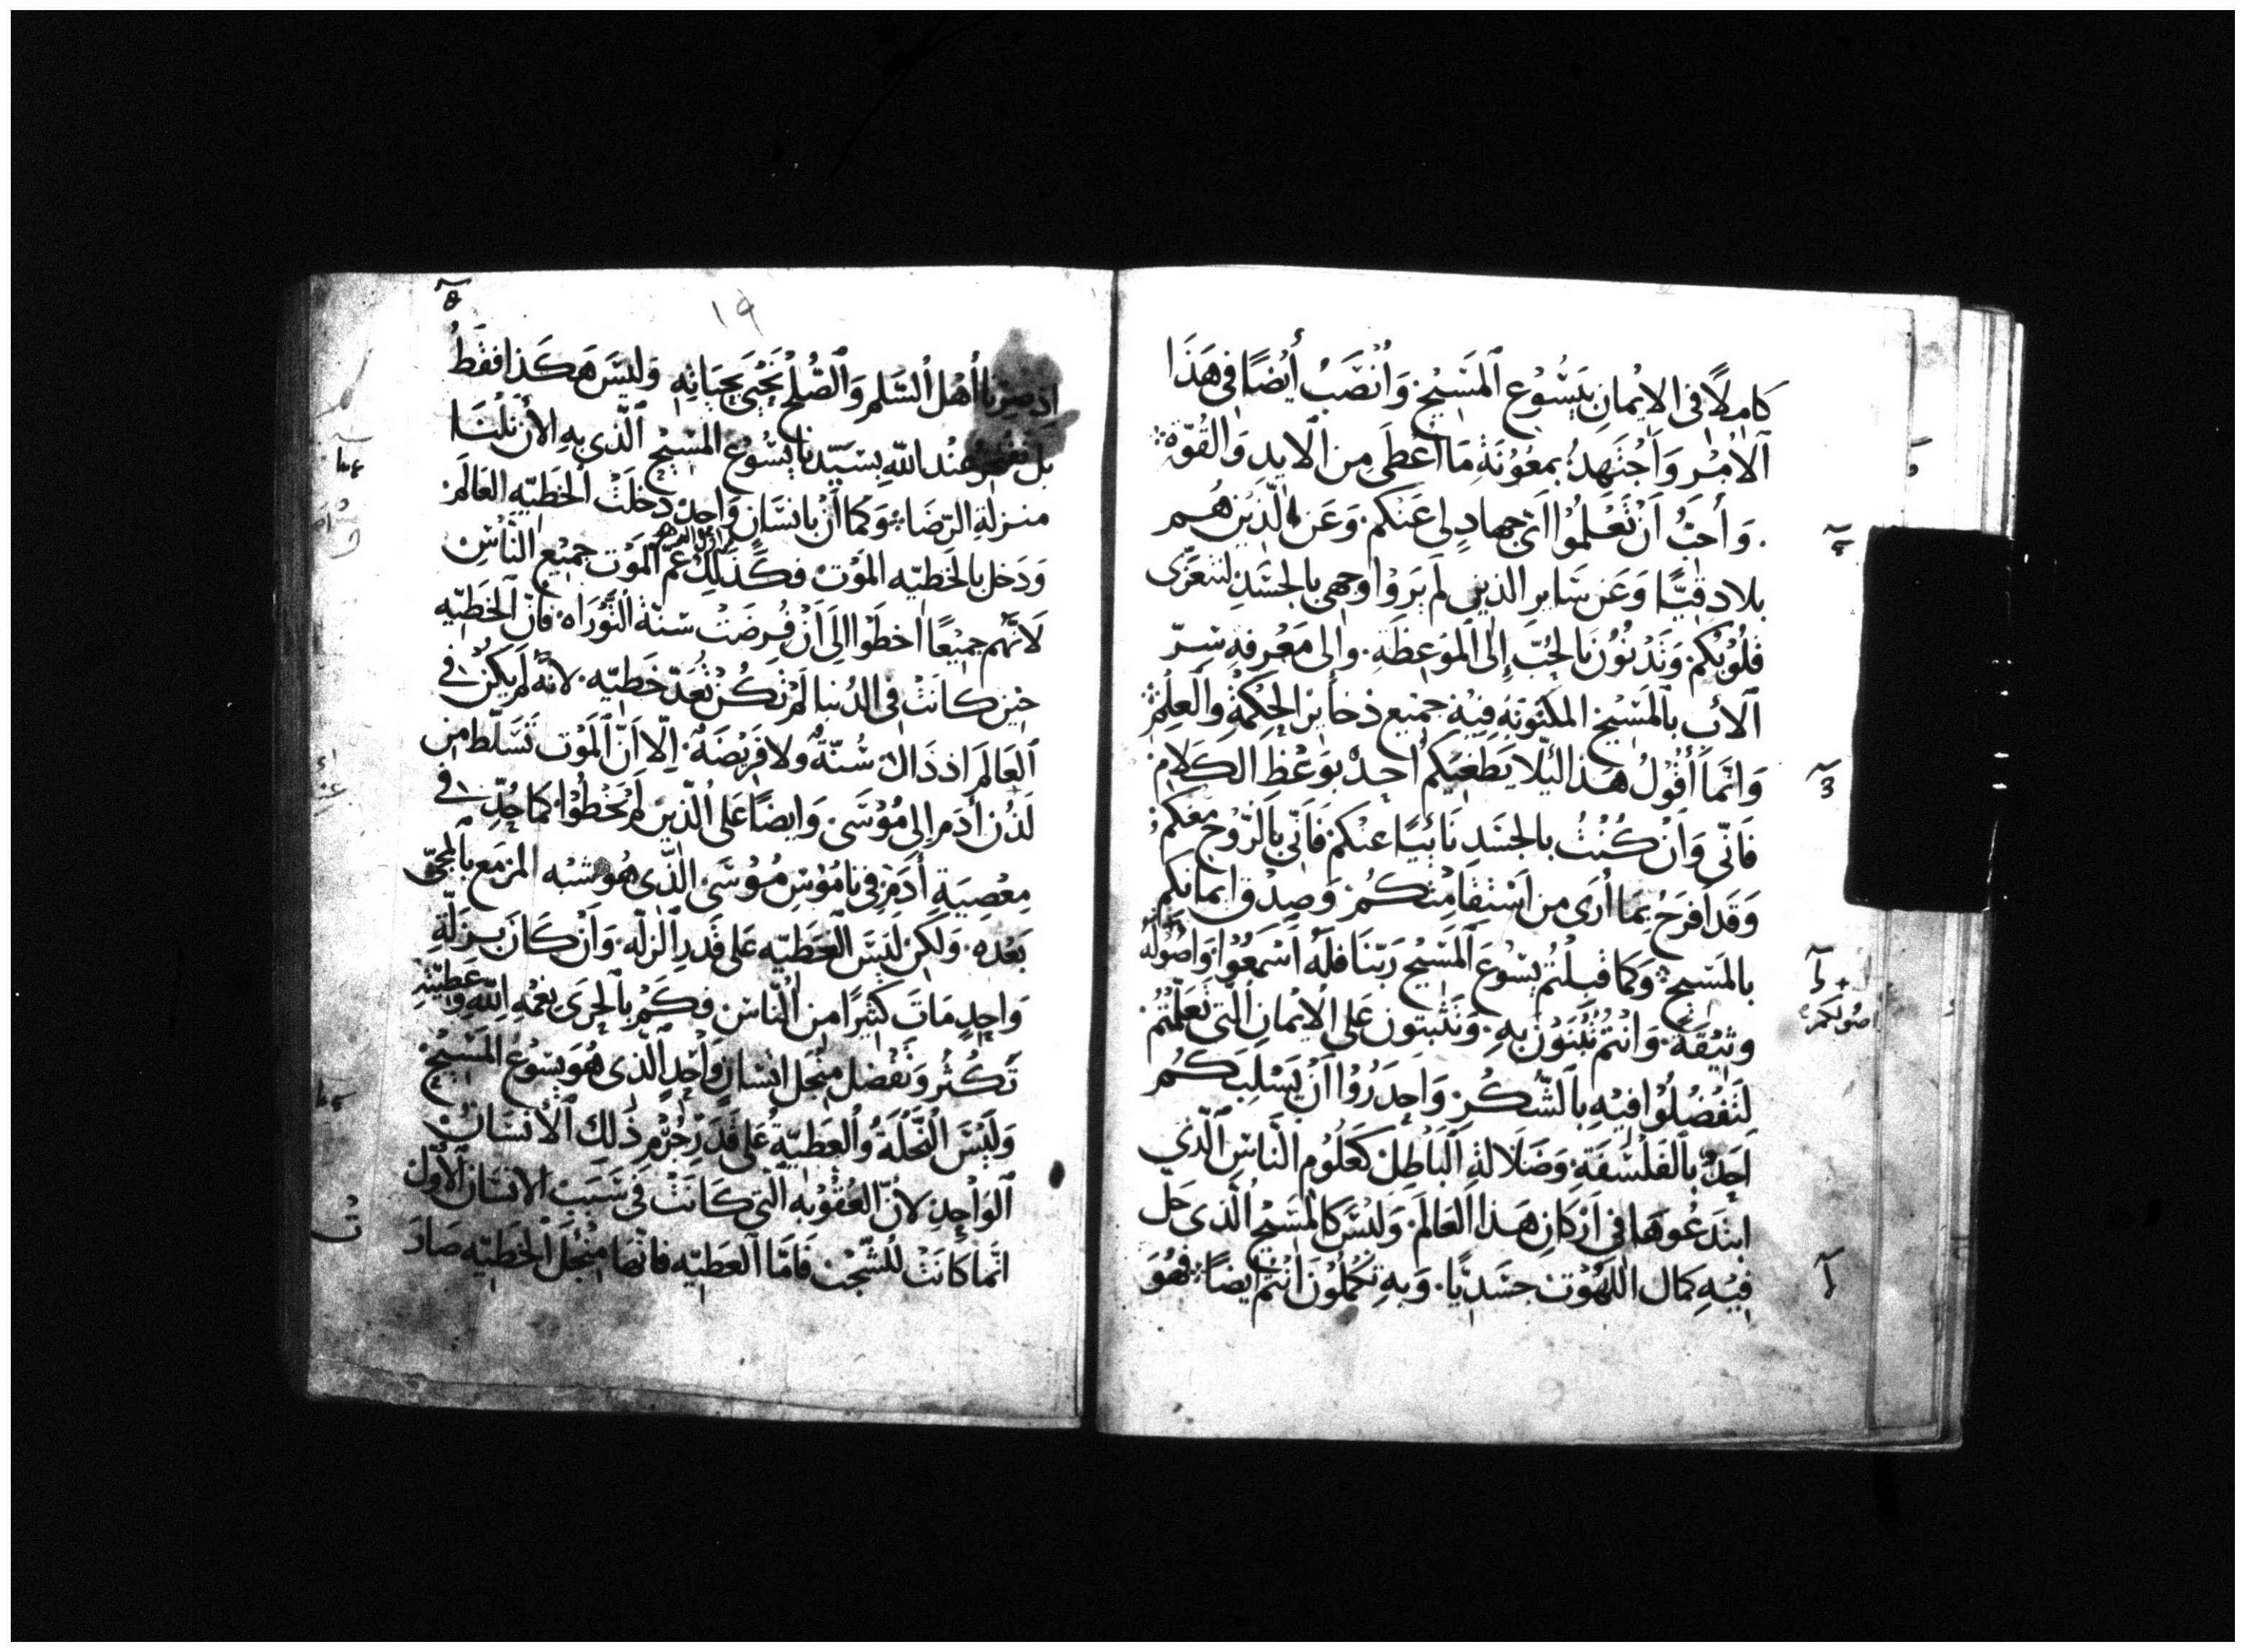 كامِلًا في الايْمانِ بيَسُوع المَسِيْح وَانْصَبُ أيْضًا في هَذَا
الاَمْر وَاجْتَهِدُ بمعُوْنَةِ مَا اَعطَى مِن الايدِ وَالقُوّةِ
وَأحبُّ اَنْ تَعْلمُوا اَىّ جهادٍ لى عَنكم وَعَن الّذِيْن هُم
بلادقيّا وَعَن سَاير الذين لَم يَرَوْا وَجهى بالجسَدِ لتتعزّى
قلُوْبُكم وَتَدْنُوْنَ بالحُبّ إلى المَوعِظَةِ وَالى مَعْرفةِ سِرّ
الآبِ بالمَسِيْح المكنونةِ فِيْهِ جمِيع ذخَأيْر الحِكمَةِ وَالعِلْم
وَانّمَا أقُوْلُ هَذا لئِلّا يَطغيَكم احدٌ بوَعْظِ الكَلامِ
فَانّى وَانْ كُنْتُ بالجسَدِ نَائِيًا عنكم فَانّى بالرّوْح معَكم
وَقد افرَحُ بمَا أرَى مِن اسْتِقَامَتكُمْ وَصِدْق ايمانكم
بالمَسِيْح وَكما قبلتُم يَسُوْعَ المَسِيْح رَبّنَا فلَهُ اسْمَعُوْا وَاصُولَه
اصُولكم
وثيْقَة وَانتُمْ تُبْنَوْنَ بهِ وَتثبتون عَلى الايْمانِ الّتى تعَلّمْتُمْ
لتَفْضُلُوْا فيْهِ بِالشّكْرِ وَاحذَرُوْا اَنْ يَسْلبَكُم
اَحَدٌ بالفَلْسَفَةِ وَضَلالةِ البَاطِل كعُلُوْمِ النّاسِ الّذي
ابتَدعُوهَا في اَرْكانِ هَذا العَالَم وَليْسَ كالمَسِيْح الّذى حَل
فِيْهِ كمال اللّهُوْت جسَدِيًّا وَبهِ تكمُلُونَ انتُم ايضًا فهُوَ
١٩
اذ صِرنا أهْل السّلم وَالصُّلْح نَحْيَى بحيَاتِهِ وَليْسَ هَكَذا فقَطْ
بل نفتخر عنْد الله بسَيّدنا يَسُوْع المَسِيْح الّذى بهِ الأن نلْنَا
منزلة الرّضَا وَكما اَنْ بانسَان وَاحِدٍ دخلَتْ الخَطيّه العَالَم
وَدَخل بالخَطيّه المَوْت فكَذلِكَ عَم المَوْت جمِيْع النّاسْ
لاَنّهُم جميْعًا اَخطَوْا الى اَنْ فُرضَتْ سُنّة التّوْرَاه فانّ الخَطيّه
حيْن كانَتْ في الدُنيا لَمْ تَكُنْ تُعَدّ خَطيّه لاَنّهُ لَم يكُنْ في
العَالَم اذ ذَاكَ سُنّةٌ ولا فَريْضَةٌ اِلّا اَنّ المَوْت تَسَلّط مِن
لَدُن أدَم الى مُوْسَى وَايضًا عَلى الّذيْن لَمْ يُخْطُوْا كما جُدّ في
معْصِيَةِ أدَم في نامُوْسِ مُوْسَى الّذى هُو شبْه المزمَع بالمجىّ
بَعْده وَلكِن لَيْسَ العَطيّه عَلى قَدر الزلّه وَاَنْ كَانَ بزلّةِ
وَاحِدٍ مَاتَ كثيْرًا مِن النّاسْ فكَمْ بالحرَى نعمَةِ اللهِ وَعَطيّتهِ
تَكْثُر وَتفضل مِنْجل انسَانٍ وَاحِدٍ الّذى هُوَ يَسُوْعُ المَسِيْح
وَلَيْسَ النّحْلَةُ وَالعَطيّةُ عَلى قَدَرِ جُرْمِ ذَلك الانْسَانِ
الوَاحِدِ لاَنّ العُقُوْبَه الّتى كَانَتْ في سَبَب الانسَان الاوّل
انّما كَانَتْ للشّجْب فَامّا العَطيّه فانّها مِنْجل الخَطيّه صَارَ